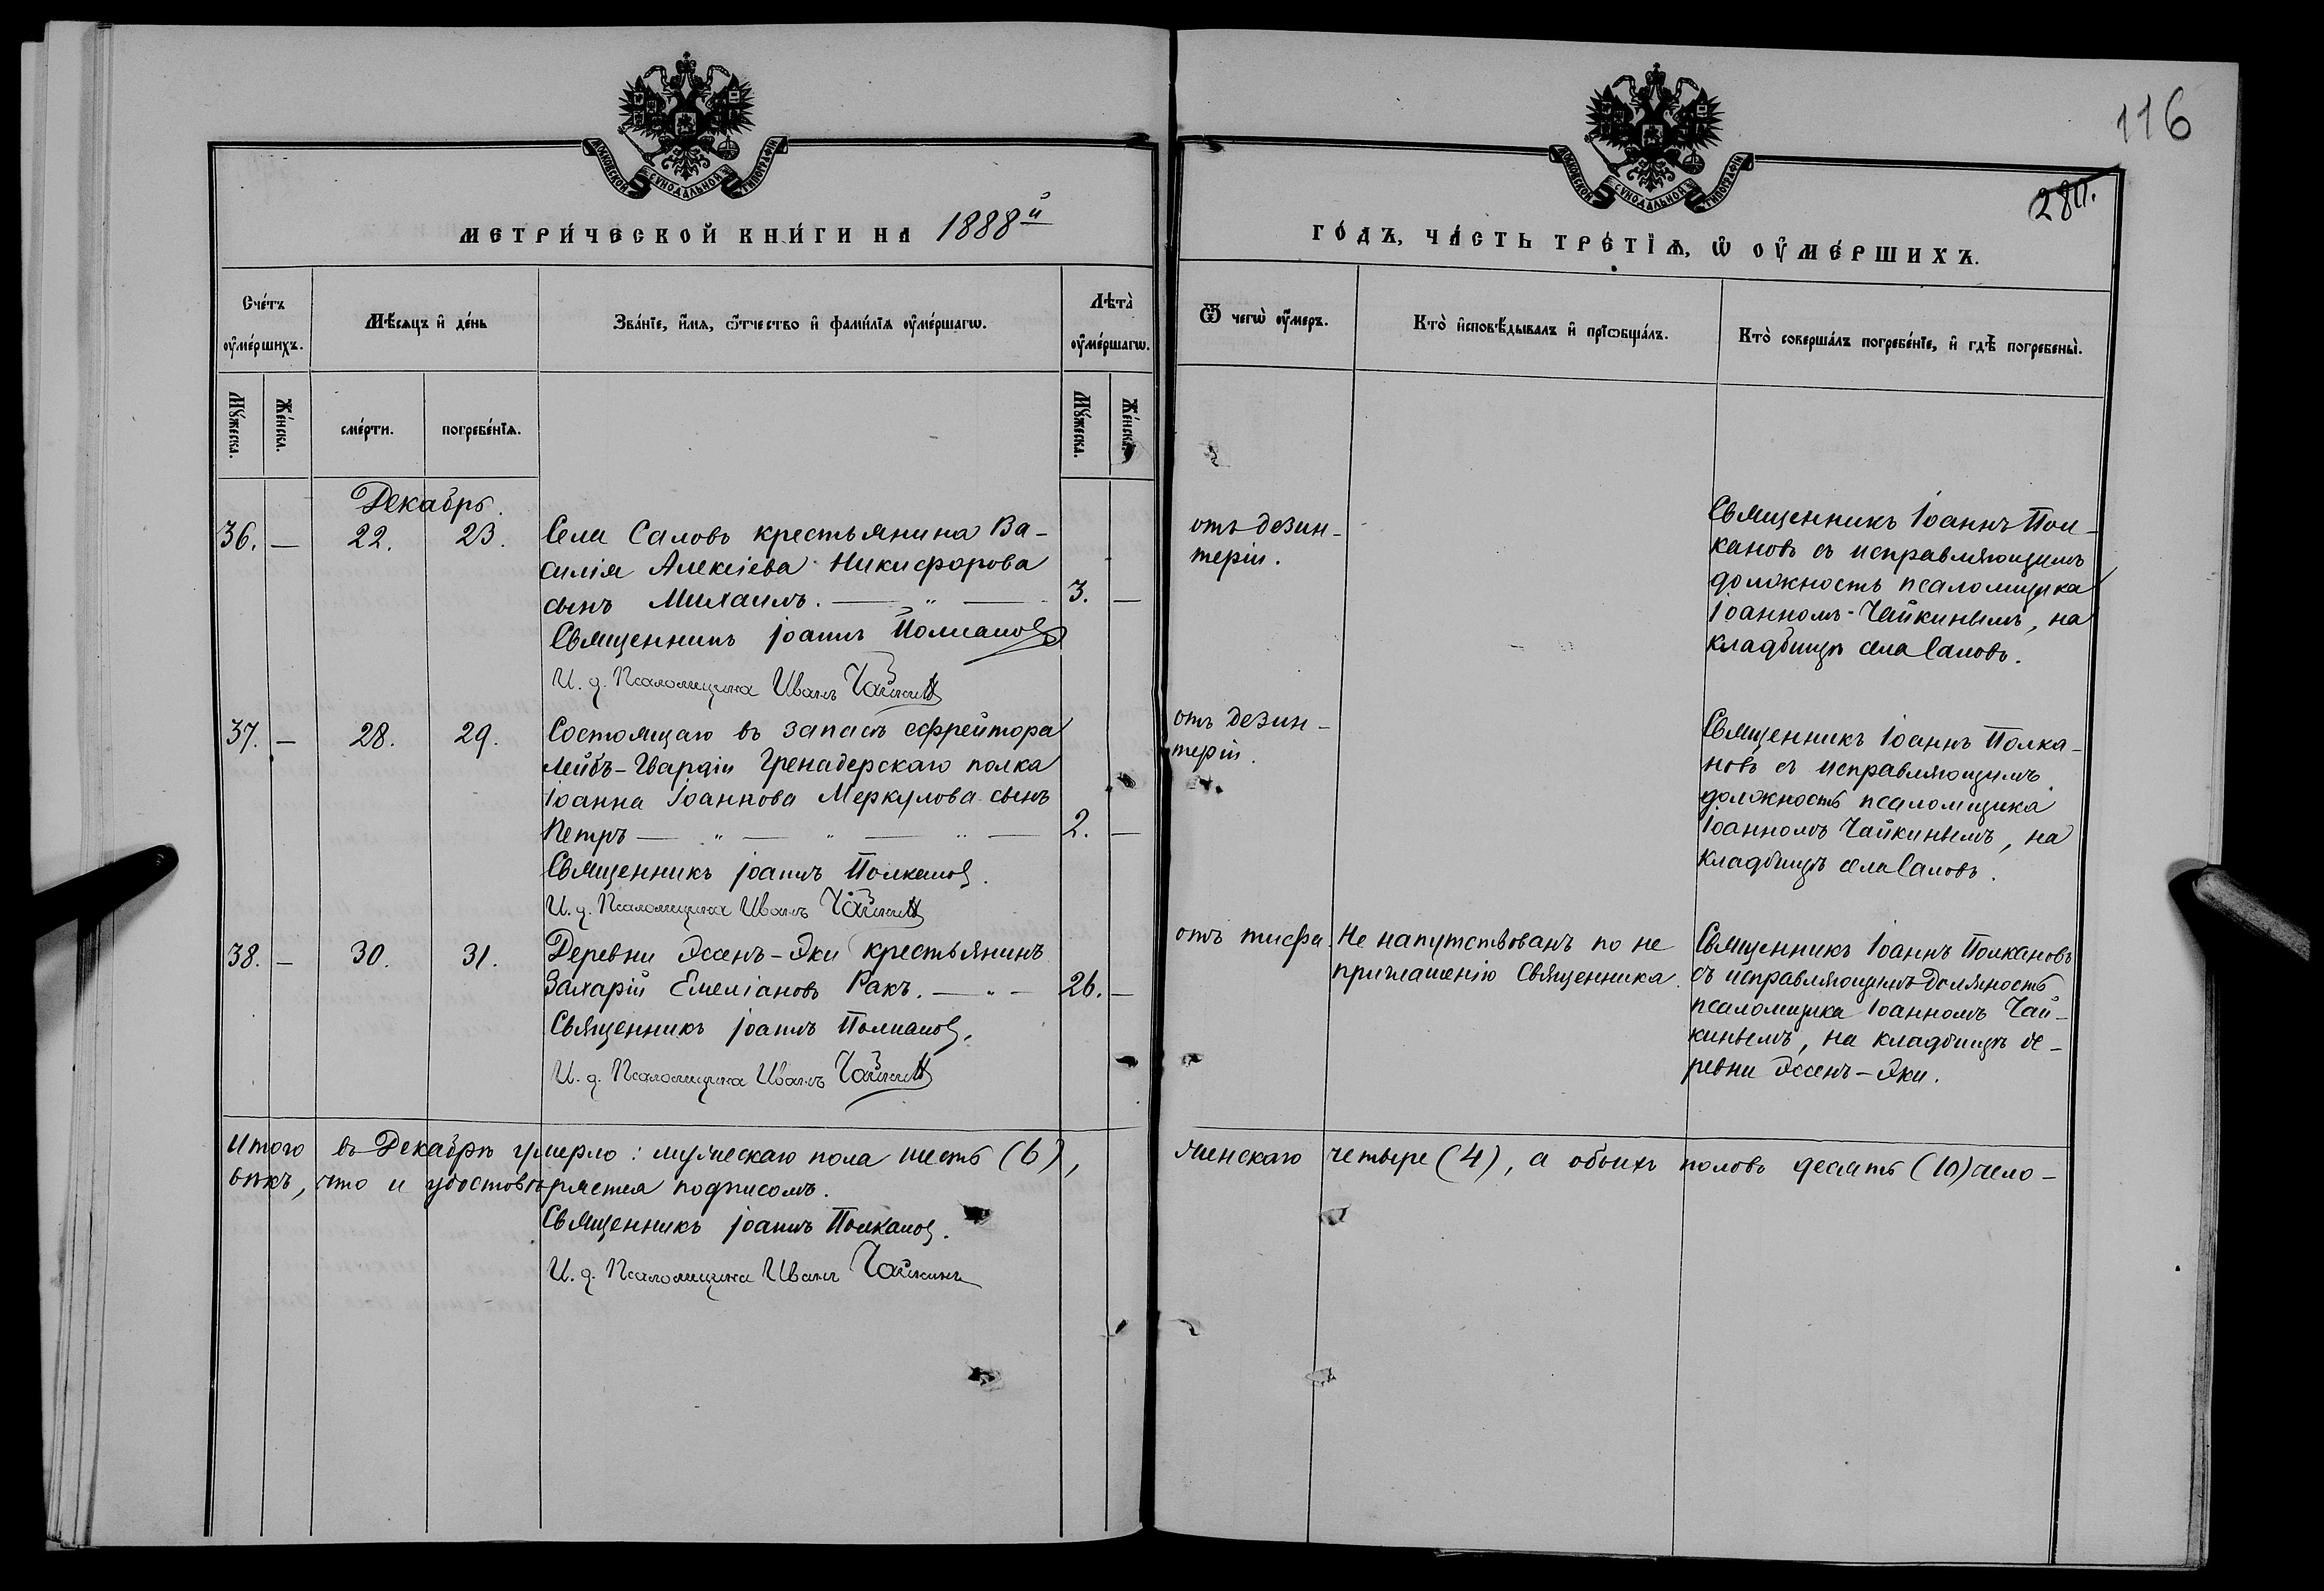 116
280.
МОСКОВСКОЙ СѴНОДАЛЬНОЙ ТИПОГРАФІИ
МОСКОВСКОЙ СѴНОДАЛЬНОЙ ТИПОГРАФІИ
МЕТРИ́ЧЕСКОЙ КНИ́ГИ НА 1888й
ГО́ДЪ, ЧА́СТЬ ТРЕ́ТЇѦ, Ѡ҆ ОУ҆МЕ́РШИХЪ.
Сче́тъ оу҆ме́ршихъ.
Мѣ́сяцъ и҆ де́нь
Зва́нїе, и҆́мѧ, ѻ҆́тчество и҆ фами́лїѧ оу҆ме́ршагѡ.
Лѣта̀ оу҆ме́ршагѡ.
Ѿ чегѡ̀ оу҆́меръ.
Кто̀ и҆сповѣ́дывалъ и҆ прїѡбща́лъ.
Кто̀ соверша́лъ погребе́нїе, и҆ гдѣ̀ погребены̀.
Мꙋ́жеска.
Же́нска.
сме́рти.
погребе́нїѧ.
Мꙋ́жеска.
Же́нска.
Декабрь.
36. — 22. 23.
Села Саловъ крестьянина Ва-
силія Алексіева Никифорова
сынъ Михаилъ. — „ — 3. —
Священникъ Іоаннъ Полканов
И. д. Псаломщика Иванъ Чайкинъ
отъ дезин-
теріи.
Священникъ Іоаннъ Пол-
кановъ съ исправляющимъ
должность псаломщика
Іоанномъ Чайкинымъ, на
кладбищѣ села Саловъ.
37. — 28. 29.
Состоящаго въ запасѣ ефрейтора
Лейбъ-Гвардіи Гренадерскаго полка
Іоанна Іоаннова Меркулова сынъ
Петръ — „ — „ — „ — 2. —
Священникъ Іоаннъ Полканов.
И. д. Псаломщика Иванъ Чайкинъ
отъ дезин-
теріи.
Священникъ Іоаннъ Полка-
новъ съ исправляющимъ
должность псаломщика
Іоанномъ Чайкинымъ, на
кладбищѣ села Саловъ.
38. — 30. 31.
Деревни Эссенъ-Эки крестьянинъ
Захарій Емеліановъ Ракъ. — „ — 26. —
Священникъ Іоаннъ Полканов.
И. д. Псаломщика Иванъ Чайкинъ
отъ тифа.
Не напутствованъ по не
приглашенію Священника.
Священникъ Іоаннъ Полкановъ
съ исправляющимъ должность
псаломщика Іоанномъ Чай-
кинымъ, на кладбищѣ де-
ревни Эссенъ-Эки.
Итого въ Декабрѣ умерло: мужескаго пола шесть (6), женскаго четыре (4), а обоихъ половъ десять (10) чело-
вѣкъ, что и удостовѣряется подписомъ.
Священникъ Іоаннъ Полканов.
И. д. Псаломщика Иванъ Чайкинъ